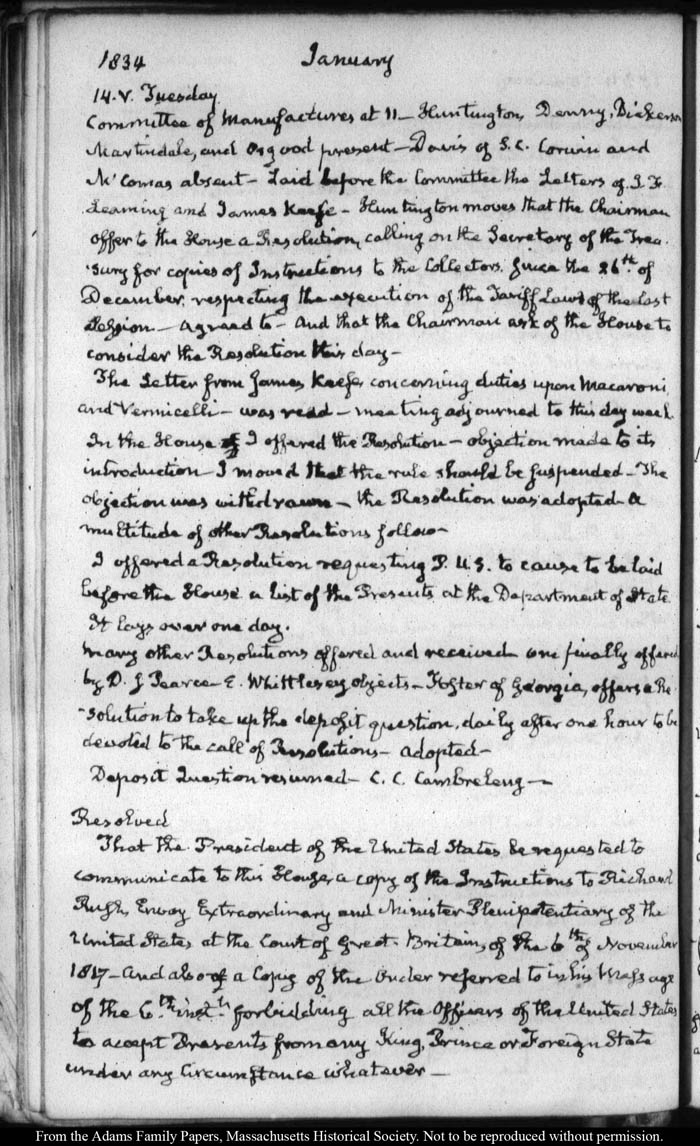 1834 January
14. V. Tuesday
Committee of Manufactures at 11 — Huntington, Denny, Dickerson
Martindale, and Osgood present — Davis of S.C. Corwin and
McComas absent — Laid before the Committee the Letters of J. F.
Leaming and James Keefe — Huntington moves that the Chairman
offer to the House a Resolution, calling on the Secretary of the Trea-
sury for copies of Instructions to the Collectors. Since the 26th. of
December, respecting the execution of the Tariff Laws of the last
Session — agreed to — And that the Chairman ask of the House to
consider the Resolution this day —
The Letter from James Keefe, concerning duties upon Macaroni,
and Vermicelli — was read — meeting adjourned to this day week.
In the House I offered the Resolution — objection made to its
introduction — I moved that the rule should be suspended — The
objection was withdrawn — the Resolution was adopted — A
multitude of other Resolutions follow —
I offered a Resolution requesting P. U.S. to cause to be laid
before the House a list of the Presents at the Department of State
It lays over one day.
Many other Resolutions offered and received — one finally offered
by D. J Pearce — E. Whittlesey objects — Foster of Georgia, offers a Re-
-solution to take up the deposit question, daily after one hour to be
devoted to the call of Resolutions — adopted —
Deposit Question resumed — C. C. Cambreleng —
Resolved
That the President of the United States be requested to
communicate to this House, a copy of the Instructions to Richard
Rush, Envoy Extraordinary and Minister Plenipotentiary of the
United States at the Court of Great-Britain, of the 6th of November
1817 — and also of a Copy of the Order referred to in his Message
of the 6th. inst. forbidding all the Officers of the United States
to accept Presents from any King, Prince or Foreign State
under any Circumstance whatever —
From the Adams Family Papers, Massachusetts Historical Society. Not to be reproduced without permission.